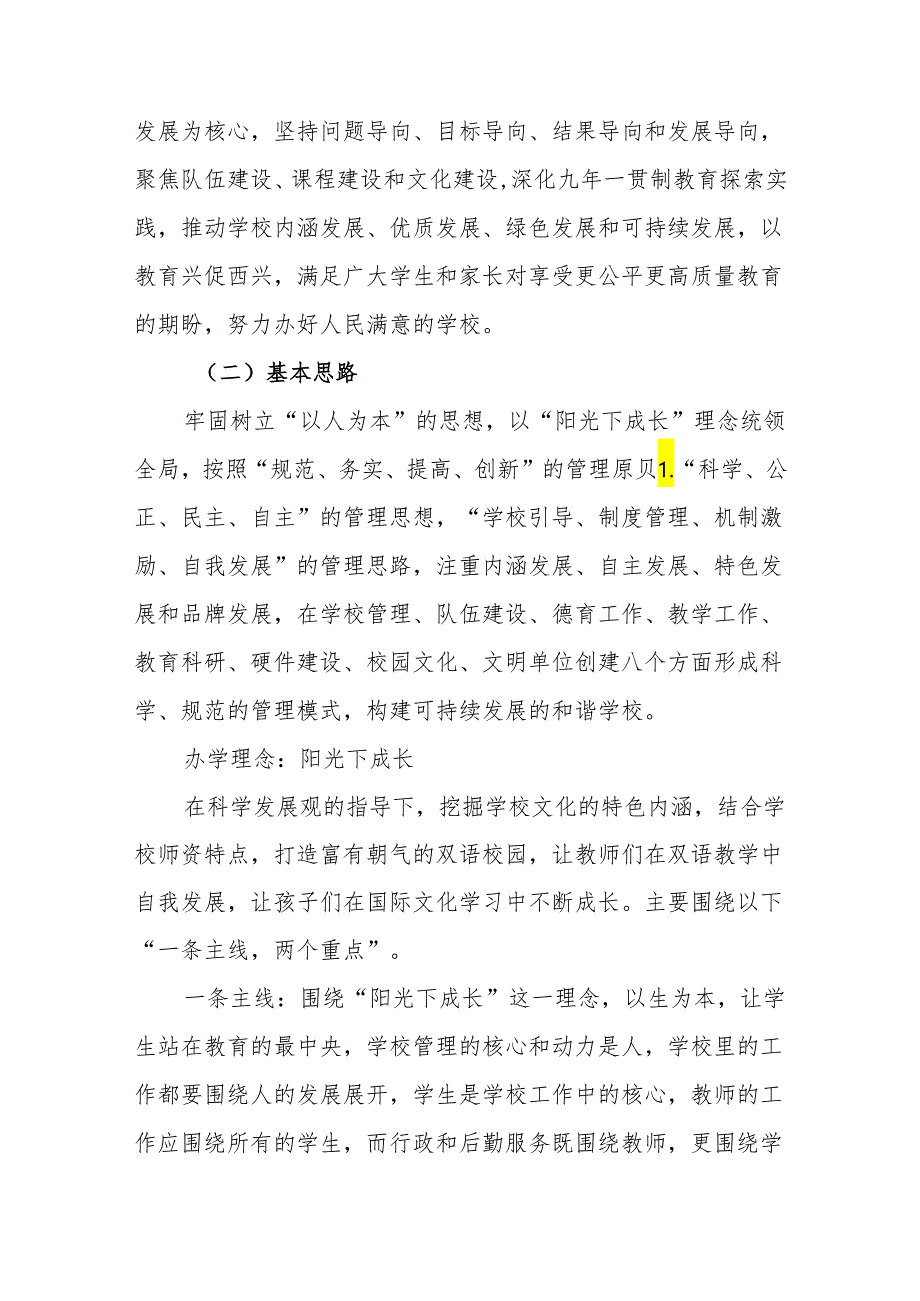 发展为核心，坚持问题导向、目标导向、结果导向和发展导向，
聚焦队伍建设、课程建设和文化建设,深化九年一贯制教育探索实
践，推动学校内涵发展、优质发展、绿色发展和可持续发展，以
教育兴促西兴，满足广大学生和家长对享受更公平更高质量教育
的期盼，努力办好人民满意的学校。
（二）基本思路
牢固树立“以人为本”的思想，以“阳光下成长”理念统领
全局，按照“规范、务实、提高、创新”的管理原贝1.“科学、公
正、民主、自主”的管理思想，“学校引导、制度管理、机制激
励、自我发展”的管理思路，注重内涵发展、自主发展、特色发
展和品牌发展，在学校管理、队伍建设、德育工作、教学工作、
教育科研、硬件建设、校园文化、文明单位创建八个方面形成科
学、规范的管理模式，构建可持续发展的和谐学校。
办学理念：阳光下成长
在科学发展观的指导下，挖掘学校文化的特色内涵，结合学
校师资特点，打造富有朝气的双语校园，让教师们在双语教学中
自我发展，让孩子们在国际文化学习中不断成长。主要围绕以下
“一条主线，两个重点”。
一条主线：围绕“阳光下成长”这一理念，以生为本，让学
生站在教育的最中央，学校管理的核心和动力是人，学校里的工
作都要围绕人的发展展开，学生是学校工作中的核心，教师的工
作应围绕所有的学生，而行政和后勤服务既围绕教师，更围绕学